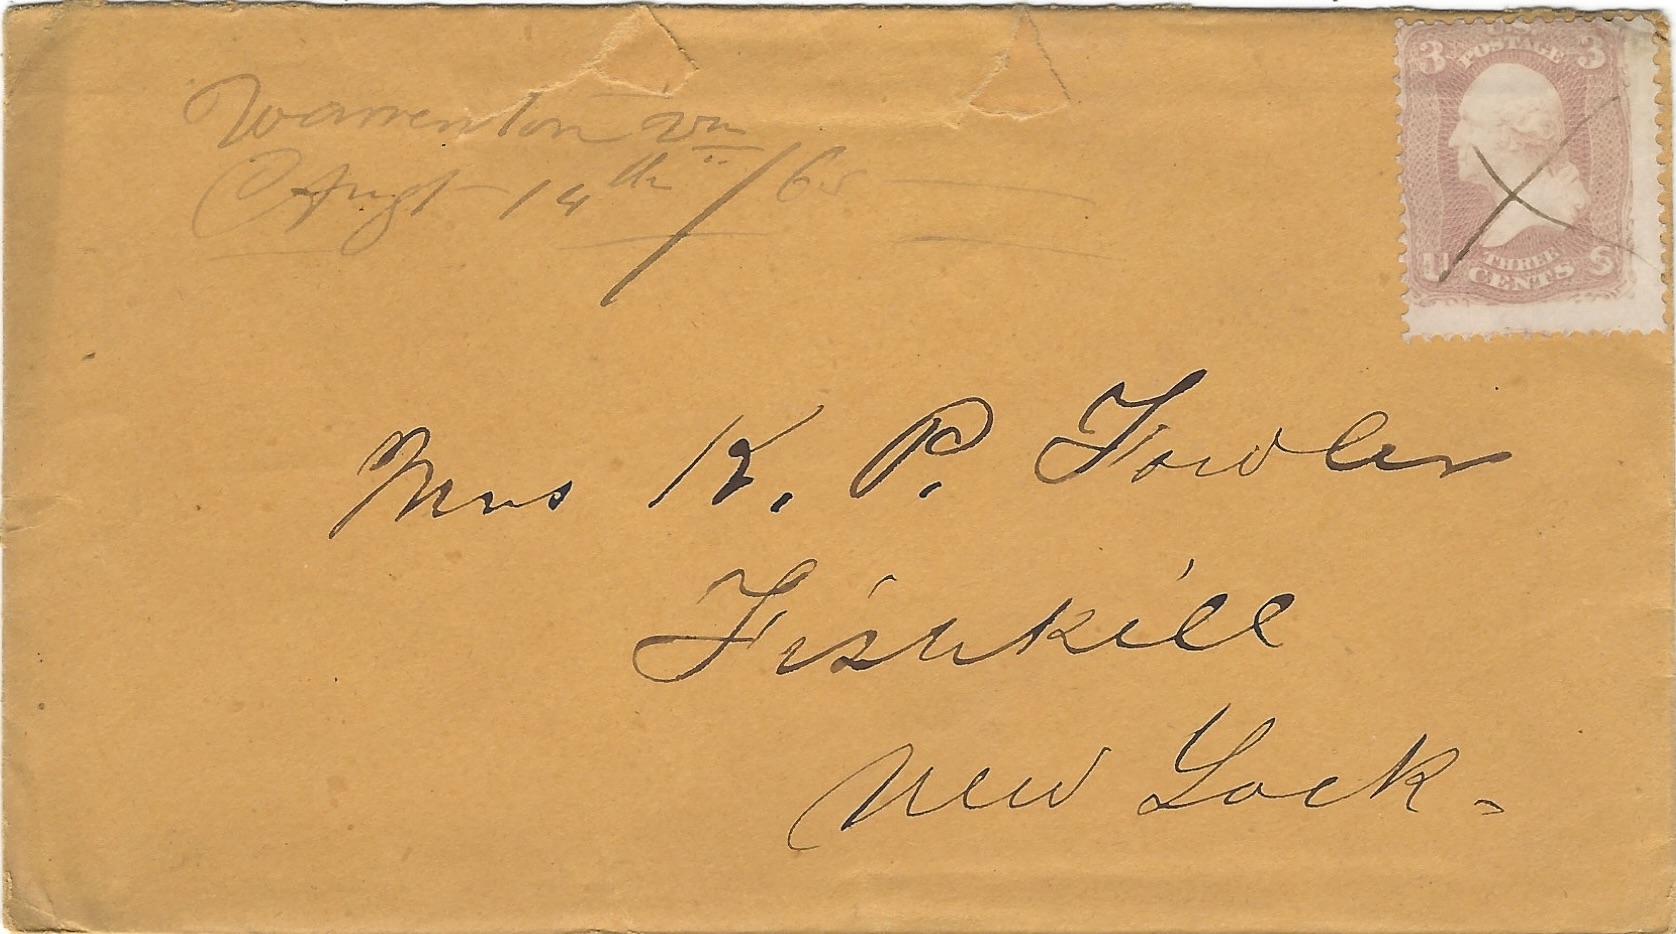 Warrenton Va
Augt 14th /65
U.S.
POSTAGE
3 3
U S
THREE
CENTS
Mrs K. P. Fowler
Fishkill
New York.